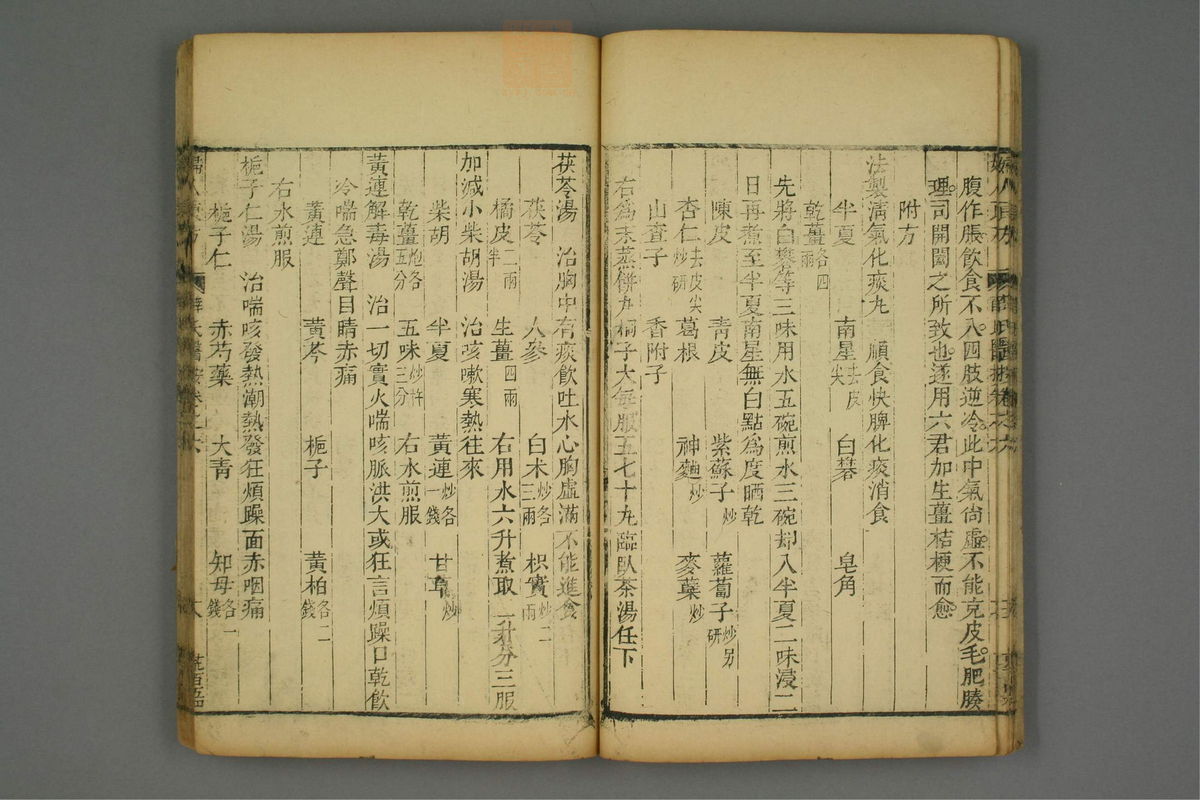 腹作脹飲食不入四肢逆冷此中氣尙虛不能克皮毛肥腠
理司開闔之所致也遂用六君加生薑桔梗而愈
附方
法製淸氣化痰丸　順食快脾化痰消食
半夏　南星去皮尖　白礬　皂角
乾薑各四兩
先將白礬等三味用水五碗煎水三碗却入半夏二味浸二
日再煮至半夏南星無白點爲度晒乾
陳皮　靑皮　紫蘇子炒　蘿蔔子炒另研
杏仁去皮尖炒研　葛根　神麯炒　麥蘗炒
山査子　香附子
右爲末蒸餅丸桐子大每服五七十丸臨臥茶湯任下
茯苓湯　治胸中有痰飮吐水心胸虛滿不能進食
茯苓　人參　白朮炒各三兩　枳實炒二兩
橘皮二兩半　生薑四兩　右用水六升煮取一升分三服
加減小柴胡湯　治咳嗽寒熱往來
柴胡　半夏　黃連炒各一錢　甘草炒
乾薑炮各五分　五味炒杵三分　右水煎服
黃連解毒湯　治一切實火喘咳脈洪大或狂言煩躁口乾飮
冷喘急鄭聲目睛赤痛
黃連　黃芩　梔子　黃柏各二錢
右水煎服
梔子仁湯　治喘咳發熱潮熱發狂煩躁面赤咽痛
梔子仁　赤芍藥　大靑　知母各一錢